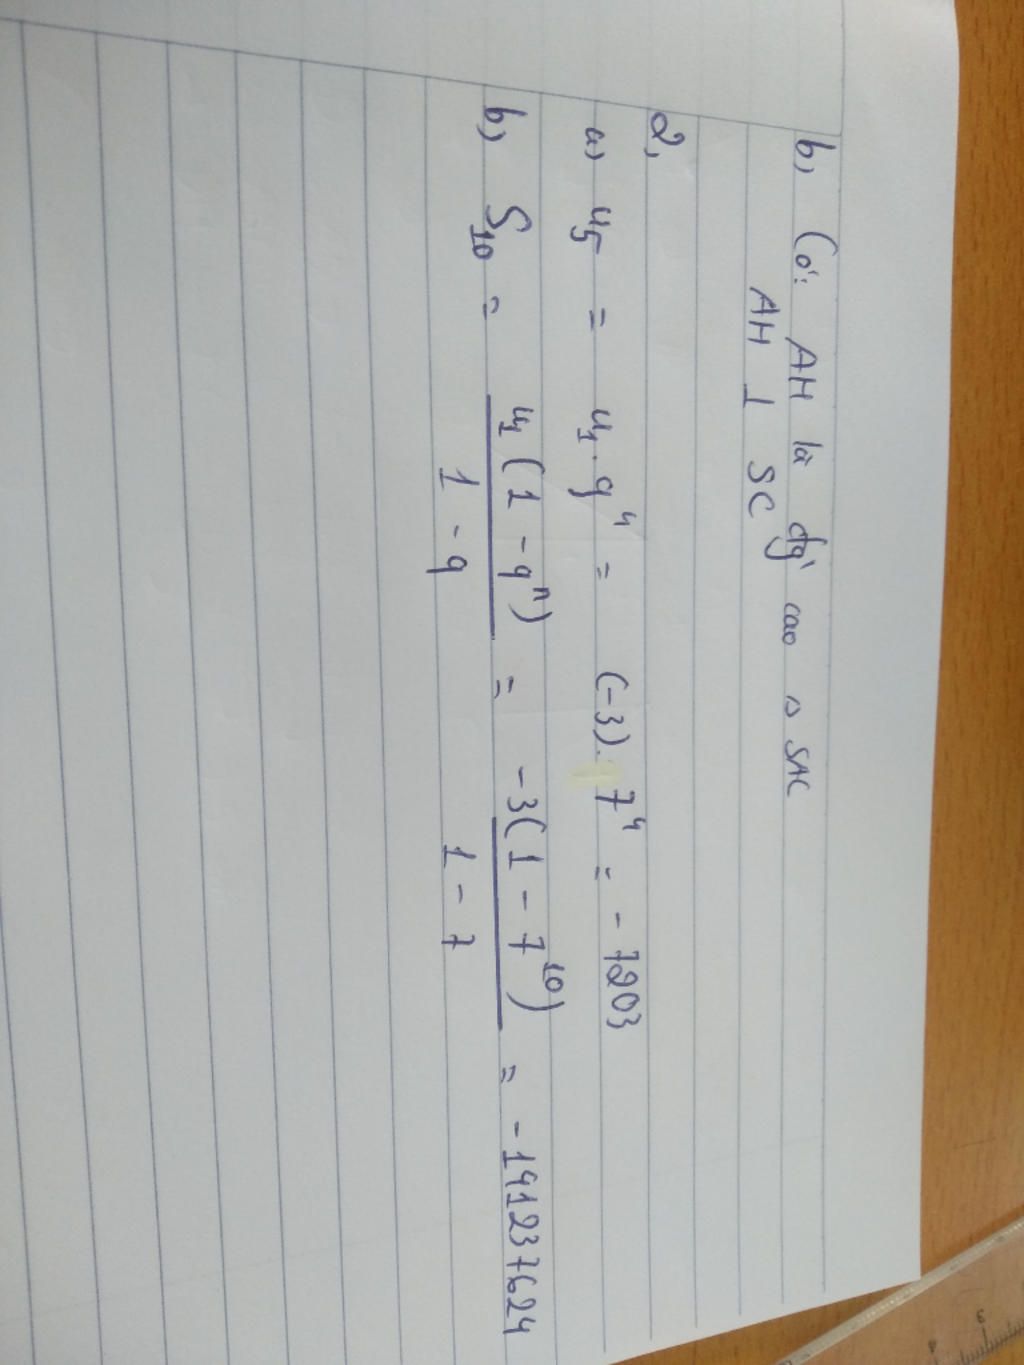 b) Có: AH là đg' cao △ SAC
AH ⊥ SC
2,
a) u₅ = u₁ . q⁴ = (-3). 7⁴ = - 7203
b) S₁₀ = u₁(1 - qⁿ) / 1 - q = -3(1 - 7¹⁰) / 1 - 7 = - 141237624
3
4